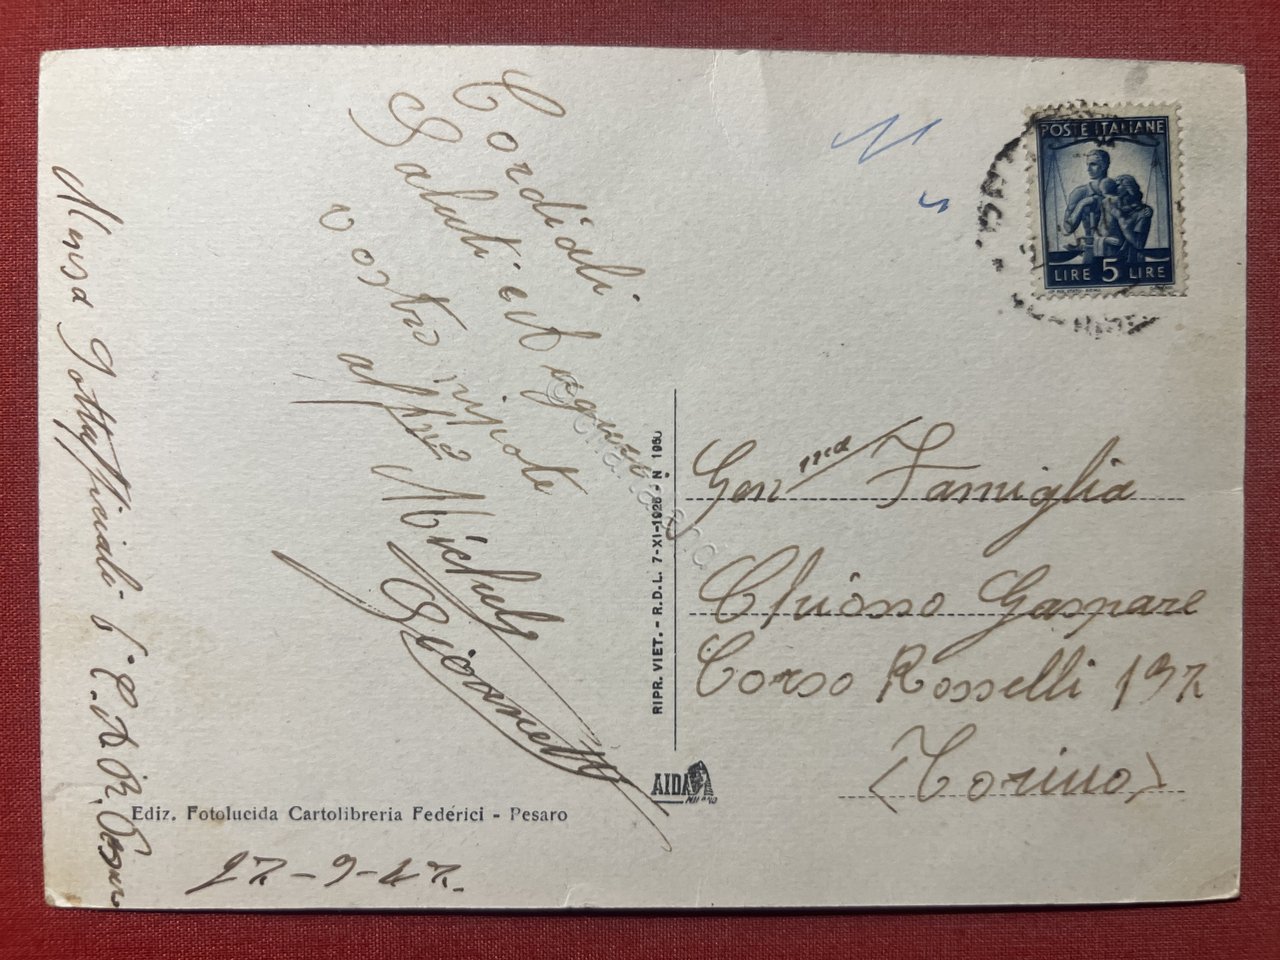 Cordiali
Saluti
vostro nipote
aff.mo Michele
Giovanetti
Mensa Sottufficiali C.A.R. Pesaro
27-9-47.
Ediz. Fotolucida Cartolibreria Federici - Pesaro
RIPR. VIET. - R.D.L. 7-XI-1925 - N 1950
AIDA
MILANO
POSTE ITALIANE
LIRE 5 LIRE
Gen ma Famiglia
Chiosso Gaspare
Corso Rosselli 137
(Torino)